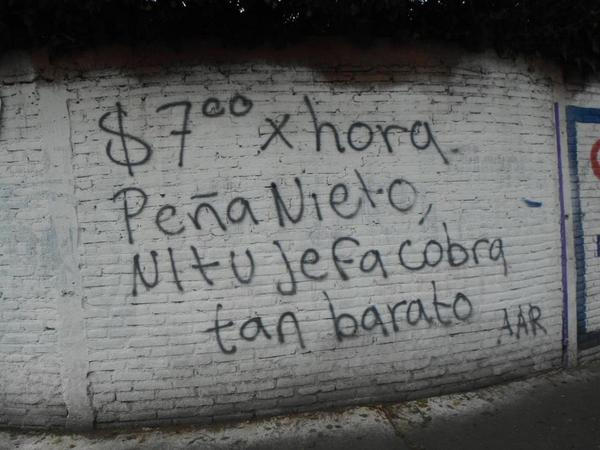 $7.00 x hora.
Peña Nieto,
Ni tu jefa cobra
tan barato
AAR